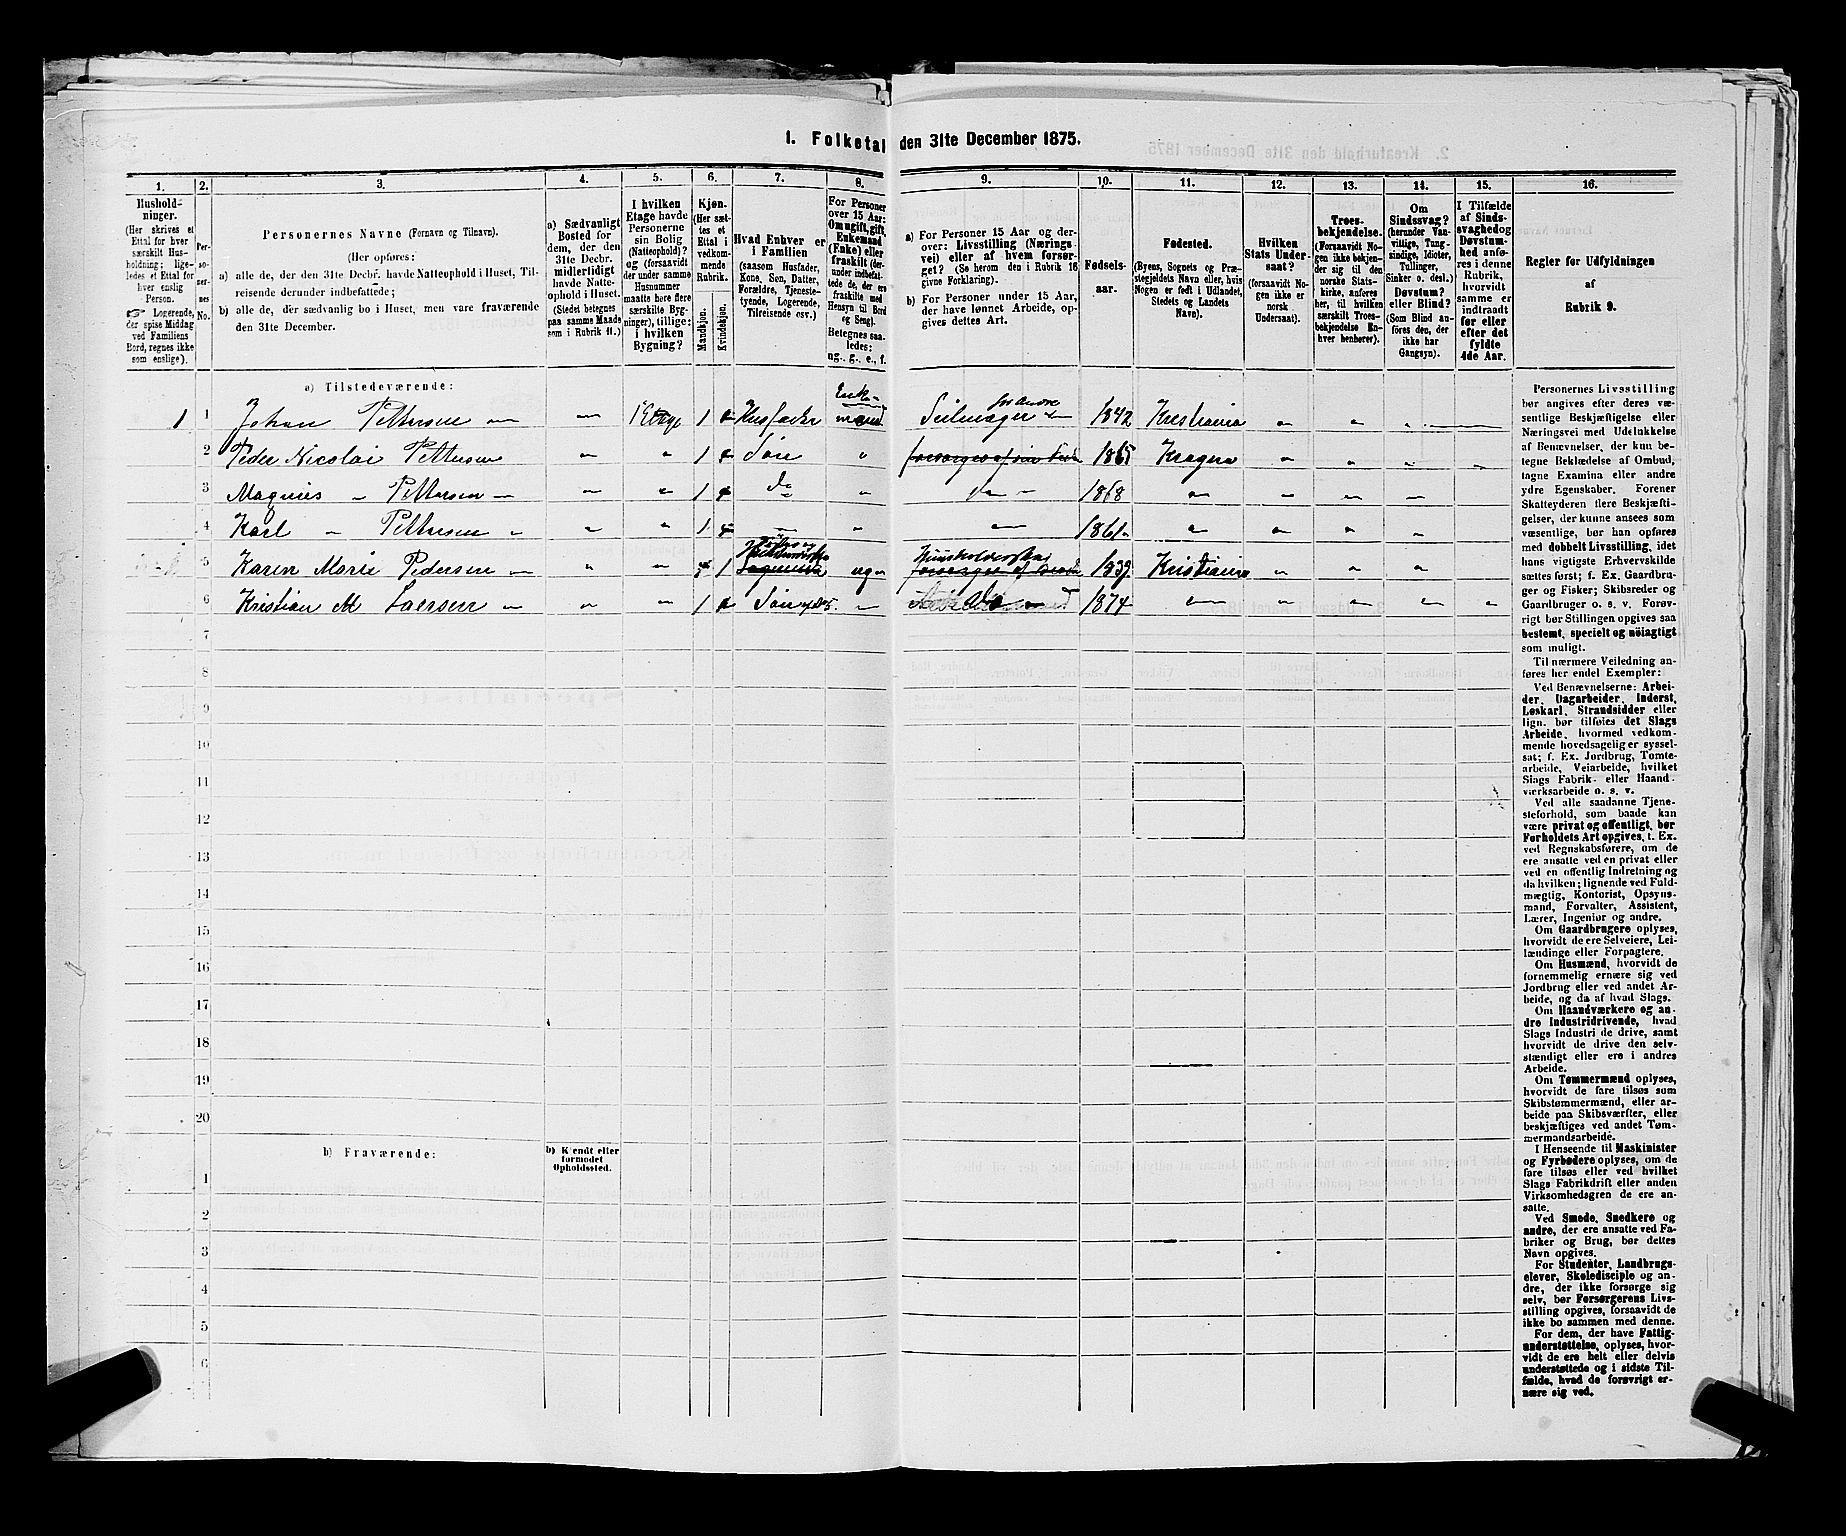 1. Folketal den 31te December 1875.
1. 2. 3. 4. 5. 6. 7. 8. 9. 10. 11. 12. 13. 14. 15. 16.
Hushold-
ninger.
(Her skrives et
Ettal for hver
særskilt Hus-
holdning; lige-
ledes et Ettal for
hver enslig
Person.
☞ Logerende,
der spise Middag
ved Familiens
Bord, regnes ikke
som enslige).
Per-
so-
ner-
nes
No.
Personernes Navne (Fornavn og Tilnavn).
(Her opføres:
a) alle de, der den 31te Decbr. havde Natteophold i Huset, Til-
reisende derunder indbefattede;
b) alle de, der sædvanlig bo i Huset, men vare fraværende
den 31te December.
a) Sædvanligt
Bosted for
dem, der den
31te Decbr.
midlertidigt
havde Natte-
ophold i Huset.
(Stedet betegnes
paa samme Maade
som i Rubrik 11.)
I hvilken
Etage havde
Personerne
sin Bolig
(Natteophold)?
og (forsaavidt
der under samme
Husnummer
maatte høre flere
særskilte Byg-
ninger), tillige:
i hvilken
Bygning?
Kjøn.
(Her sæt-
tes et
Ettal i
vedkom-
mende
Rubrik.
Mandkjøn.
Kvindekjøn.
Hvad Enhver er
i Familien
(saasom Husfader,
Kone, Søn, Datter,
Forældre, Tjeneste-
tyende, Logerende,
Tilreisende osv.)
For Personer
over 15 Aar:
Om ugift, gift,
Enkemand
(Enke) eller
fraskilt (der-
under indbefat-
tede de, der ere
fraskilte med
Hensyn til Bord
og Seng).
Betegnes saa-
ledes:
ug., g., e., f.
a) For Personer 15 Aar og der-
over: Livsstilling (Nærings-
vei) eller af hvem forsør-
get? (Se herom den i Rubrik 16
givne Forklaring).
b) For Personer under 15 Aar,
der have lønnet Arbeide, op-
gives dettes Art.
Fødsels-
aar.
Fødested.
(Byens, Sognets og Præ-
stegjeldets Navn eller, hvis
Nogen er født i Udlandet,
Stedets og Landets
Navn).
Hvilken
Stats Under-
saat?
(forsaavidt No-
gen ikke er
norsk
Undersaat).
Troes-
bekjendelse.
(Forsaavidt No-
gen ikke bekjen-
der sig til den
norske Stats-
kirke, anføres
her, til hvilken
særskilt Troes-
bekjendelse En-
hver henhører).
Om
Sindssvag?
(herunder Van-
vittige, Tung-
sindige, Idioter,
Tullinger,
Sinker o. desl.)
Døvstum?
eller Blind?
(Som Blind an-
føres den, der
ikke har
Gangsyn).
I Tilfælde
af Sinds-
svaghed og
Døvstum-
hed anfø-
res i denne
Rubrik,
hvorvidt
samme er
indtraadt
før eller
efter det
fyldte
4de Aar.
Regler for Udfyldningen
af
Rubrik 9.
a) Tilstedeværende:
1 1 Johan Pettersen 1 Etage 1 Husfader Enke-mand Seilmager for Andre 1842 Kristiania
2 Peder Nicolai Pettersen 1 Søn 1865 Kragerø
3 Magnus Pettersen 1 do 1868
4 Karl Pettersen 1
5 Karen Marie Pedersen 1 ug Huusholderske 1839 Kristiania
6 Kristian M Larsen 1 Søn af No 5 1874
7
8
9
10
11
12
13
14
15
16
17
18
19
20
b) Fraværende:
b) Kjendt eller
formodet
Opholdssted.
1
2
3
4
5
6
Personernes Livsstilling
bør angives efter deres væ-
sentlige Beskjæftigelse eller
Næringsvei med Udelukkelse
af Benævnelser, der kun be-
tegne Beklædelse af Ombud,
tagne Examina eller andre
ydre Egenskaber. Forener
Skatteyderen flere Beskjæfti-
gelser, der kunne ansees som
væsentlige, bør han opføres
med dobbelt Livsstilling, idet
hans vigtigste Erhvervskilde
sættes først; f. Ex. Gaardbru-
ger og Fisker; Skibsreder og
Gaardbruger o. s. v. Forøv-
rigt bør Stillingen opgives saa
bestemt, specielt og nöiagtigt
som muligt.
Til nærmere Veiledning an-
føres her endel Exempler:
Ved Benævnelserne: Arbei-
der, Dagarbeider, Inderst,
Løskarl, Strandsidder eller
lign. bør tilføies det Slags
Arbeide, hvormed vedkom-
mende hovedsagelig er syssel-
sat; f. Ex. Jordbrug, Tomte-
arbeide, Veiarbeide, hvilket
Slags Fabrik- eller Haand
værksarbeide o. s. v.
Ved alle saadanne Tjene-
steforhold, som baade kan
være privat og offentligt, bør
Forholdets Art opgives, f. Ex.
ved Regnskabsførere, om de
ere ansatte ved en privat eller
ved en offentlig Indretning og
da hvilken; lignende ved Fuld-
mægtig, Kontorist, Opsyns-
mand, Forvalter, Assistent,
Lærer, Ingeniør og andre.
Om Gaardbrugere oplyses,
hvorvidt de ere Selveiere, Lei-
lændinge eller Forpagtere.
Om Husmænd, hvorvidt de
fornemmelig ernære sig ved
Jordbrug eller ved andet Ar-
beide, og da af hvad Slags.
Om Haandværkere og an-
dre Industridrivende, hvad
Slags Industri de drive, samt
hvorvidt de drive den selv-
stændigt eller ere i andres
Arbeide.
Om Tømmermænd oplyses,
hvorvidt de fare tilsøs som
Skibstømmermænd, eller ar-
beide paa Skibsværfter, eller
beskjæftiges ved andet Tøm-
mermandsarbeide.
I Henseende til Maskinister
og Fyrbødere oplyses, om de
fare tilsøs eller ved hvilket
Slags Fabrikdrift eller anden
Virksomhedsgren de ere an-
satte.
Ved Smede, Snedkere og
andre, der ere ansatte ved Fa-
briker og Brug, bør dettes
Navn opgives.
For Studenter, Landbrugs-
elever, Skoledisciple og an-
dre, der ikke forsørge sig
selv, bør Forsørgerens Livs-
stilling opgives, forsaavidt de
ikke bo sammen med denne.
For dem, der have Fattig-
understøttelse, oplyses, hvor-
vidt de ere helt eller delvis
understøttede og i sidste Til-
fælde, hvad de forøvrigt er-
nære sig ved.